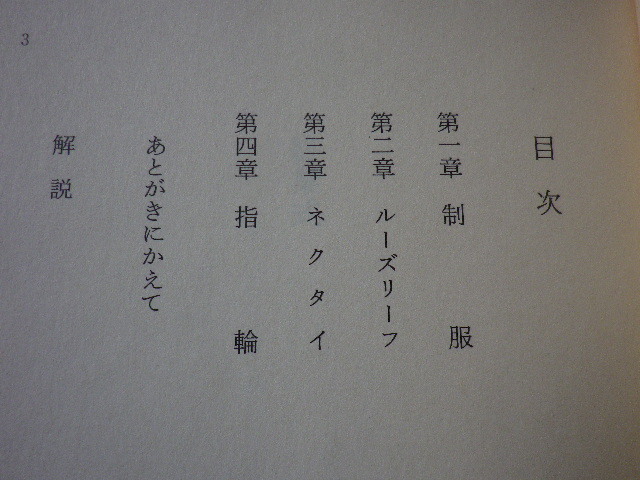 目次
第一章 制服
第二章 ルーズリーフ
第三章 ネクタイ
第四章 指輪
あとがきにかえて
解説
3